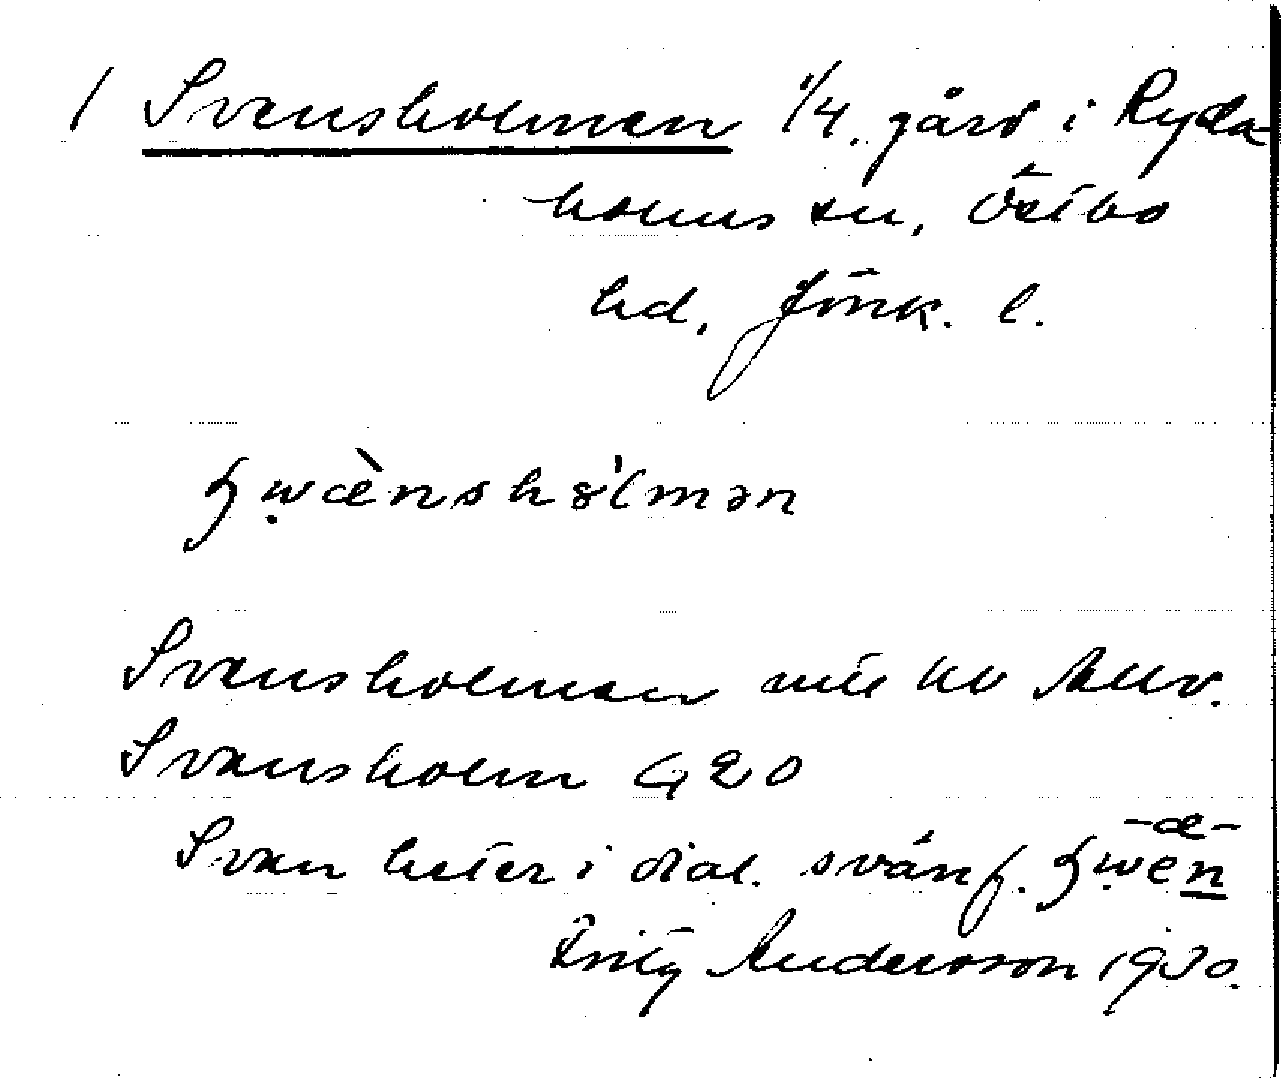 1 Svensholmen 1/4 gård i Ryda-
holms sn, Östbo
hd, Jönk. l.
ʂwæ̀nshólmən
Svensholmen
Svansholm G20
Svan heter i dial. svän f. ʂwen -æ-
Fritz Andersson 1930.